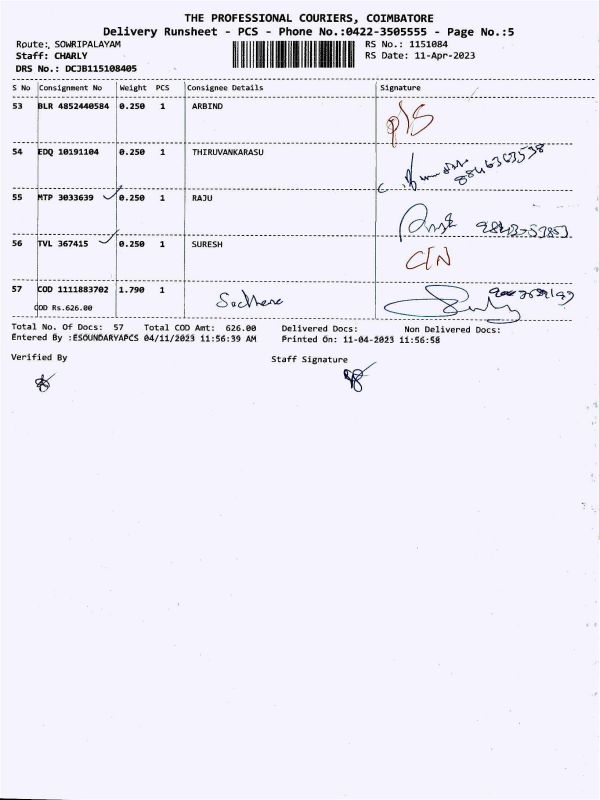 THE PROFESSIONAL COURIERS, COIMBATORE
Delivery Runsheet - PCS - Phone No.:0422-3505555 - Page No.:5
Route: SOWRIPALAYAM RS No.: 1151084
Staff: CHARLY RS Date: 11-Apr-2023
DRS No.: DCJB115108405
S No Consignment No Weight PCS Consignee Details Signature
53 BLR 4852440584 0.250 1 ARBIND
54 EDQ 10191104 0.250 1 THIRUVANKARASU
55 MTP 3033639 0.250 1 RAJU
56 TVL 367415 0.250 1 SURESH
57 COD 1111883702 1.790 1
COD Rs.626.00
Total No. Of Docs: 57 Total COD Amt: 626.00 Delivered Docs: Non Delivered Docs:
Entered By :ESOUNDARYAPCS 04/11/2023 11:56:39 AM Printed On: 11-04-2023 11:56:58
Verified By Staff Signature